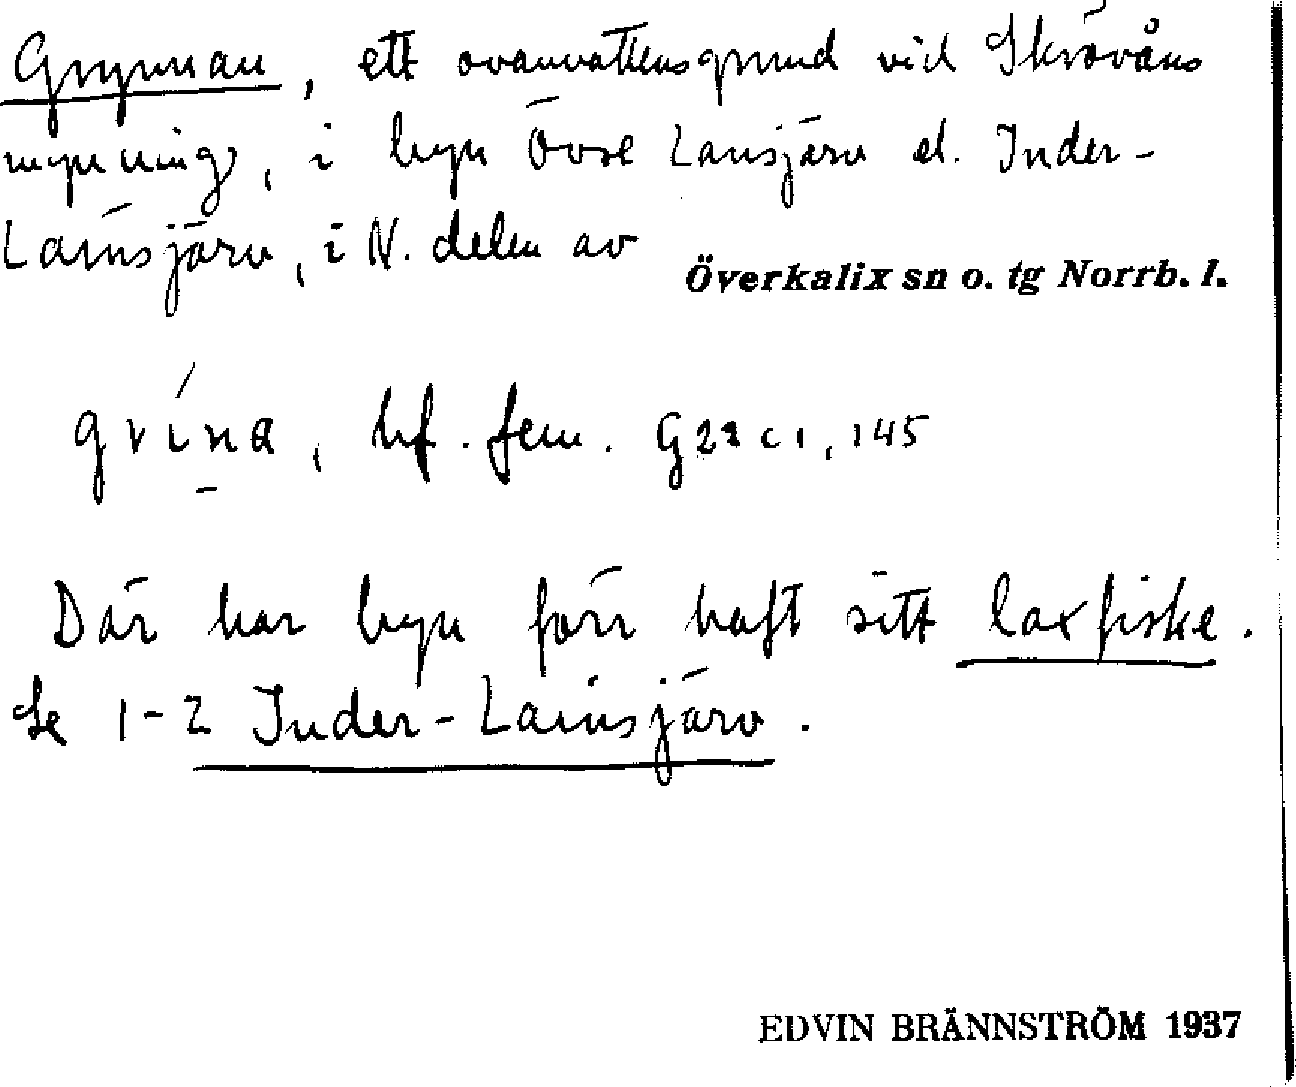 Grynnan, ett ovanvattensgrund vid Skrövåns
mynning, i byn Övre Lansjärv el. Inder-
Lansjärv, i N. delen av Överkalix sn o. tg Norrb. l.
grína, bf. fem. G 22 c 1, 145
Där har byn förr haft sitt laxfiske.
Se 1-2 Inder-Lansjärv.
EDVIN BRÄNNSTRÖM 1937